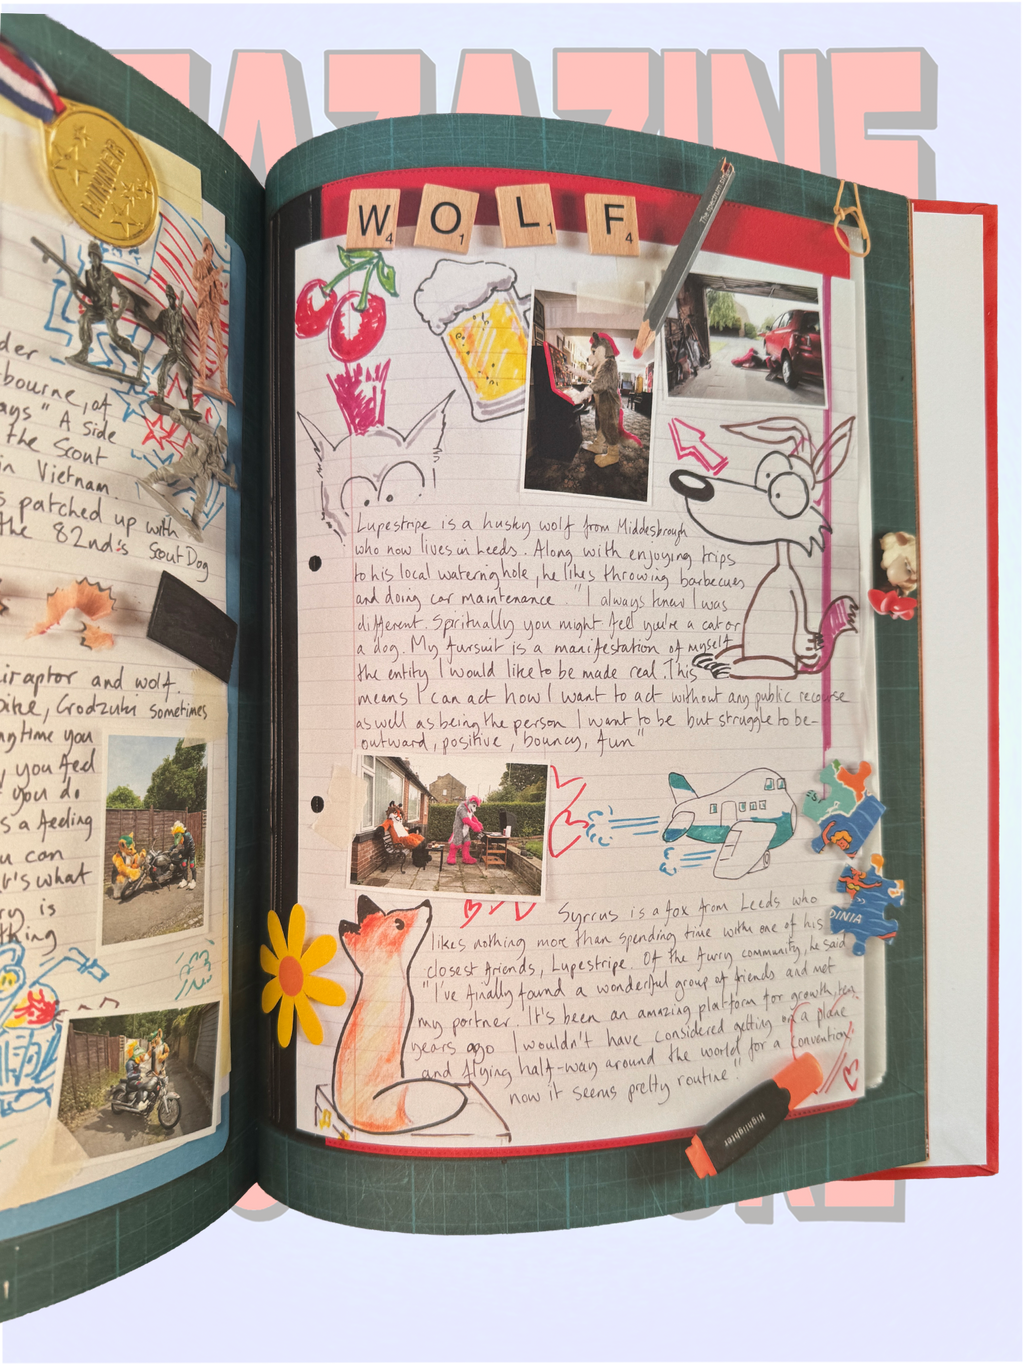 MAZAZINE
WINNER
W4 O1 L1 F4
The Spectrum
der
bourne, of
ays " A side
the Scout
in Vietnam.
s patched up with
the 82nd's Scout Dog
iraptor and wolf.
bike, Grodzuki sometimes
ngtime you
, you feel
you do
s a feeling
u can
t's what
ry is
thing
Lupestripe is a husky wolf from Middlesbrough
who now lives in Leeds. Along with enjoying trips
to his local watering hole, he likes throwing barbecues
and doing car maintenance. "I always knew I was
different. Spiritually you might feel you're a cat or
a dog. My fursuit is a manifestation of myself
the entity I would like to be made real. This
means I can act how I want to act without any public recourse
as well as being the person I want to be but struggle to be-
outward, positive, bouncy, fun"
DINIA
Syrrus is a fox from Leeds who
likes nothing more than spending time with one of his
closest friends, Lupestripe. Of the furry community, he said
"I've finally found a wonderful group of friends and met
my partner. It's been an amazing platform for growth, ten
years ago I wouldn't have considered getting on a plane
and flying half-way around the world for a convention
now it seems pretty routine"
Highlighter